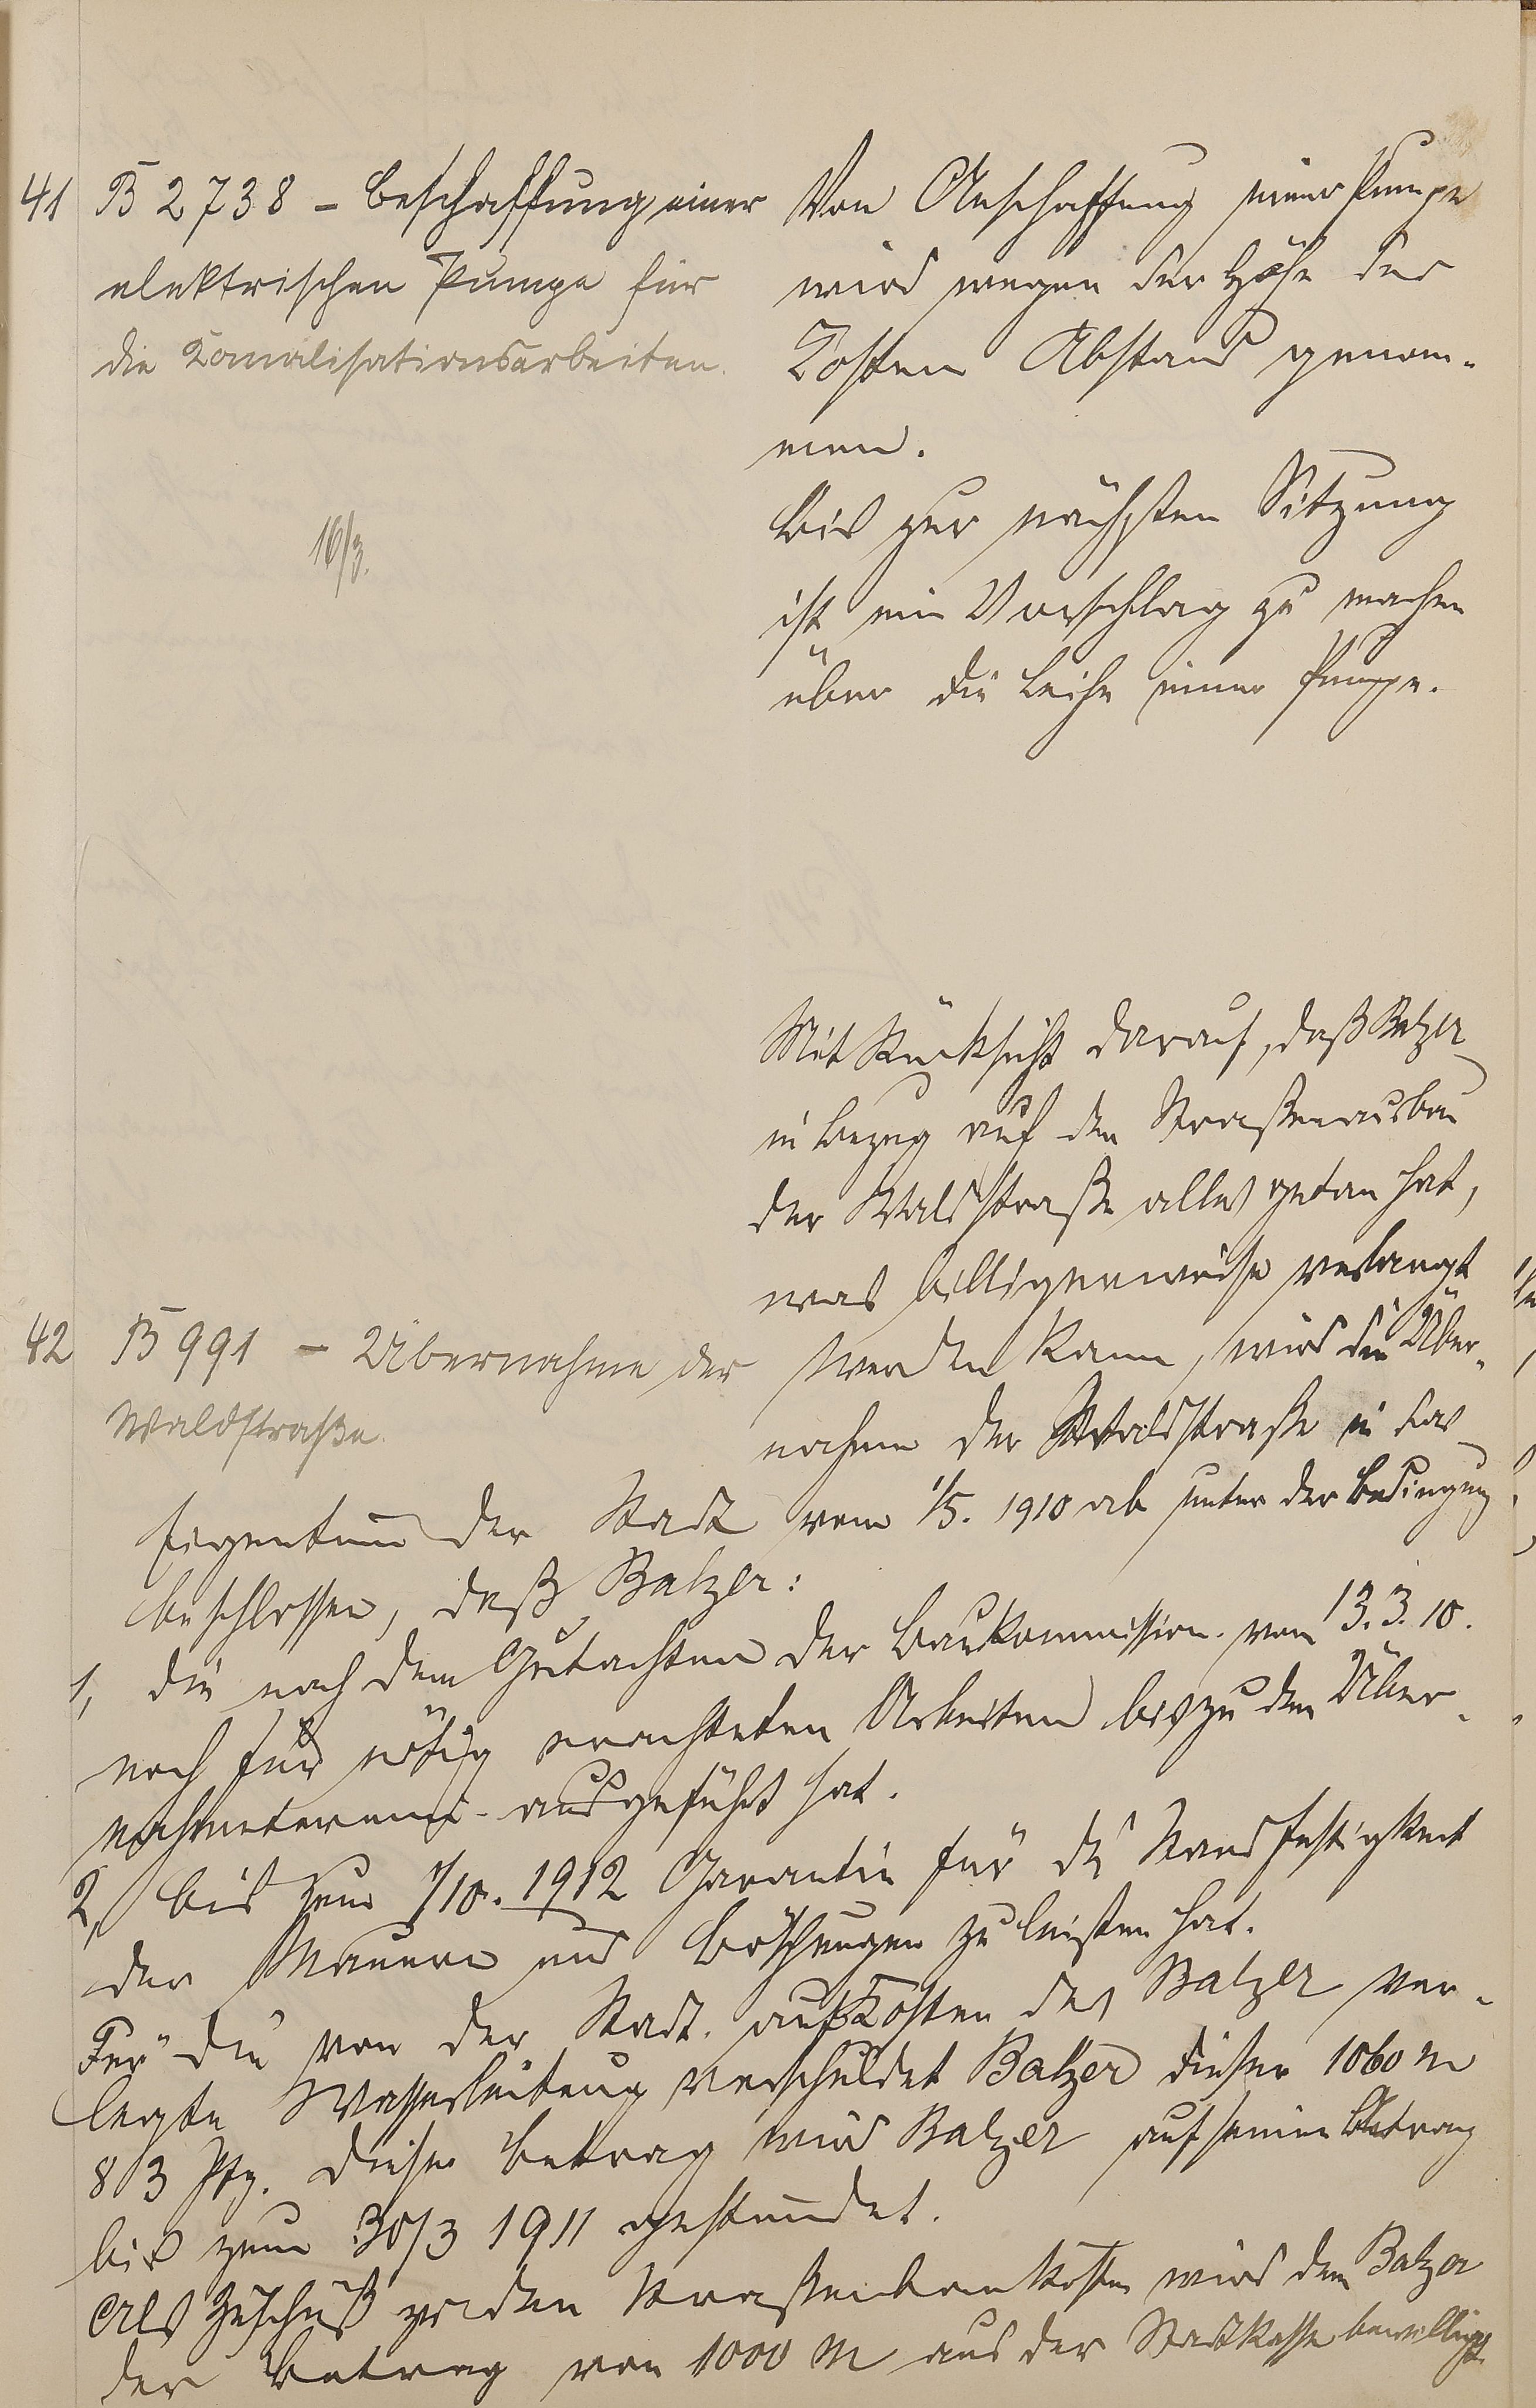 41 B 2738 - Beschaffung einer
elektrischen Pumpe für
die Kanalisationsarbeiten.
16/3.
Von Anschaffung einer Pumpe
wird wegen der Höhe der
Kosten Abstand genom-
men.
Bis zur nächsten Sitzung
ist ein Vorschlag zu machen
über die Leihe einer Pumpe.
42 B 991 - Übernahme der
Waldstraße.
Mit Rücksicht darauf, daß Balzer
in Bezug auf den Straßenausbau
der Waldstraße alles getan hat,
was billigerweise verlangt
werden kann, wird die Über-
nahme der Waldstraße in das
Eigentum der Stadt vom 1/5. 1910 ab unter der Bedingung
beschlossen, daß Balzer:
1, die nach dem Gutachten der Baukommission vom 13.3.10.
noch für nötig erachteten Arbeiten bis zu dem Über-
nahmetermin ausgeführt hat.
2, bis zum 1/10. 1912 Garantie für die Standfestigkeit
der Mauern und Böschungen zu leisten hat.
Für die von der Stadt auf Kosten des Balzer ver-
legte Wasserleitung verschuldet Balzer dieser 1060 M
83 Pfg. Dieser Betrag wird Balzer auf seinen Antrag
bis zum 30/3 1911 gestundet.
Als Zuschuß zu den Straßenbaukosten wird dem Balzer
der Betrag von 1000 M aus der Stadtkasse bewilligt.